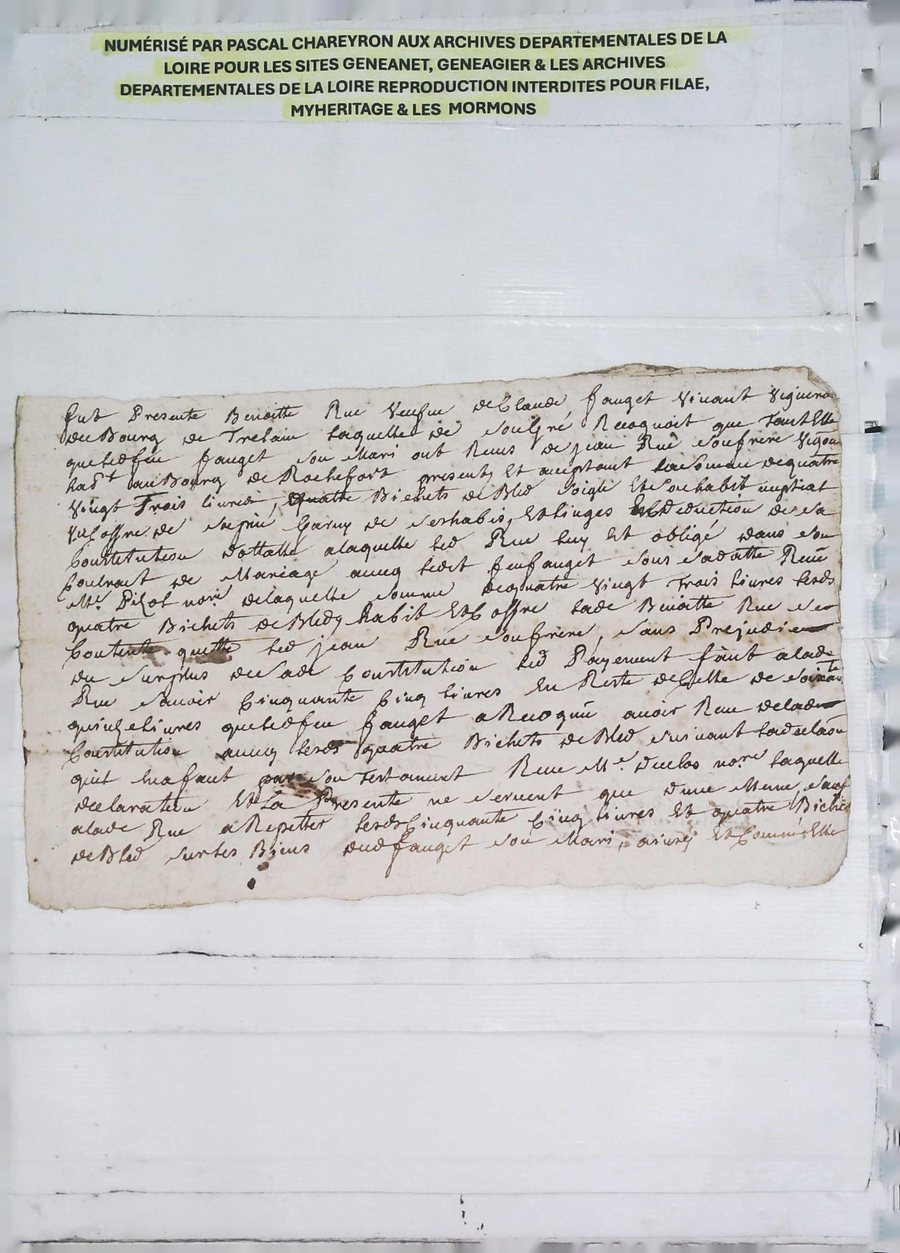 NUMÉRISÉ PAR PASCAL CHAREYRON AUX ARCHIVES DEPARTEMENTALES DE LA
LOIRE POUR LES SITES GENEANET, GENEAGIER & LES ARCHIVES
DEPARTEMENTALES DE LA LOIRE REPRODUCTION INTERDITES POUR FILAE,
MYHERITAGE & LES MORMONS
fut Presente Benoitte Rue Veufve de Claude fauget Vivant Vigneron
du Bourg de Trelain laquelle de son gré Recognoit que tant Elle
que led feu fauget son Mari ont Receu de jean Rue son frere Vigon
hab.t au Bourg de Rochefort present, Et acceptant la somme de quatre
Vingt Trois livres, quatre Bichets de Bled Soigle Et son habit nuptial
coffre de sapin garny de ses habis, Et linges En deduction de sa
Constitution dottalle a laquelle led Rue luy Est obligé dans son
Contract de Mariage avecq ledit feu fauget sous sa datte Receu
M.e nore de laquelle somme de quatre Vingt Trois livres lesd
quatre Bichets de Bled, habit Et Coffre lade Benoitte Rue se
Contente quitte led jean Rue son frere, sans Prejudice
du surplus de sade Constitution led Payement faict a lade
Rue savoir Cinquante Cinq livres En Reste de Celle de soixante
quinze livres que led feu fauget a Recognu avoir Receu de lade
Constitution avecq lesd quatre Bichets de Bled suivant la declaraon
qu'il En a faict par son testament Receu M.e duclos nore laquelle
declaration Et La Presente ne servent que d'une Meme, sauf
a lade Rue a Repetter lesd Cinquante Cinq livres Et quatre Bichets
de Bled sur les Biens dud fauget son Mari, ainsy Et Comme Elle